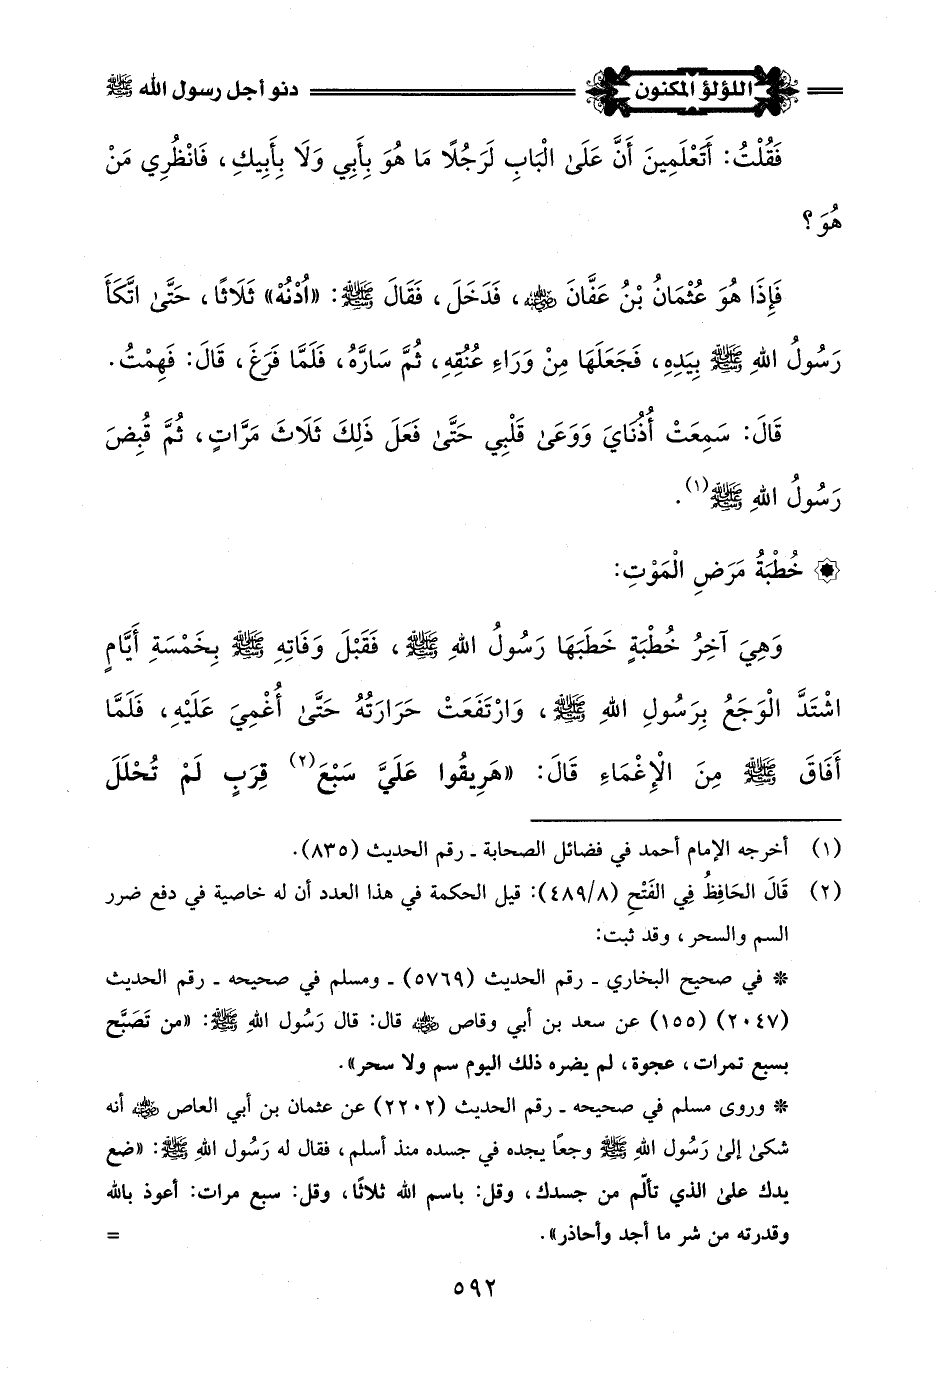 اللؤلؤ المكنون دنو أجل رسول الله ﷺ
فَقُلْتُ: أَتَعْلَمِينَ أَنَّ عَلَىٰ الْبَابِ لَرَجُلًا مَا هُوَ بِأَبِي وَلَا بِأَبِيكِ، فَانْظُرِي مَنْ
هُوَ؟
فَإِذَا هُوَ عُثْمَانُ بْنُ عَفَّانَ رضي الله عنه، فَدَخَلَ، فَقَالَ ﷺ: «ادْنُهْ» ثَلَاثًا، حَتَّىٰ اتَّكَأَ
رَسُولُ اللهِ ﷺ بِيَدِهِ، فَجَعَلَهَا مِنْ وَرَاءِ عُنُقِهِ، ثُمَّ سَارَّهُ، فَلَمَّا فَرَغَ، قَالَ: فَهِمْتُ.
قَالَ: سَمِعَتْ أُذُنَايَ وَوَعَىٰ قَلْبِي حَتَّىٰ فَعَلَ ذَلِكَ ثَلَاثَ مَرَّاتٍ، ثُمَّ قُبِضَ
رَسُولُ اللهِ ﷺ(١).
۞ خُطْبَةُ مَرَضِ الْمَوْتِ:
وَهِيَ آخِرُ خُطْبَةٍ خَطَبَهَا رَسُولُ اللهِ ﷺ، فَقَبْلَ وَفَاتِهِ ﷺ بِخَمْسَةِ أَيَّامٍ
اشْتَدَّ الْوَجَعُ بِرَسُولِ اللهِ ﷺ، وَارْتَفَعَتْ حَرَارَتُهُ حَتَّىٰ أُغْمِيَ عَلَيْهِ، فَلَمَّا
أَفَاقَ ﷺ مِنَ الْإِغْمَاءِ قَالَ: «هَرِيقُوا عَلَيَّ سَبْعَ(٢) قِرَبٍ لَمْ تُحْلَلَ
(١) أخرجه الإمام أحمد في فضائل الصحابة ـ رقم الحديث (٨٣٥).
(٢) قَالَ الحَافِظُ فِي الفَتْحِ (٤٨٩/٨): قيل الحكمة في هذا العدد أن له خاصية في دفع ضرر
السم والسحر، وقد ثبت:
* في صحيح البخاري ـ رقم الحديث (٥٧٦٩) ـ ومسلم في صحيحه ـ رقم الحديث
(٢٠٤٧) (١٥٥) عن سعد بن أبي وقاص رضي الله عنه قال: قال رَسُولُ اللهِ ﷺ: «من تَصَبَّح
بسبع تمرات، عجوة، لم يضره ذلك اليوم سم ولا سحر».
* وروى مسلم في صحيحه ـ رقم الحديث (٢٢٠٢) عن عثمان بن أبي العاص رضي الله عنه أنه
شكىٰ إلىٰ رَسُولِ اللهِ ﷺ وجعًا يجده في جسده منذ أسلم، فقال له رَسُولُ اللهِ ﷺ: «ضع
يدك علىٰ الذي تألّم من جسدك، وقل: باسم الله ثلاثًا، وقل: سبع مرات: أعوذ بالله
وقدرته من شر ما أجد وأحاذر». =
٥٩٢